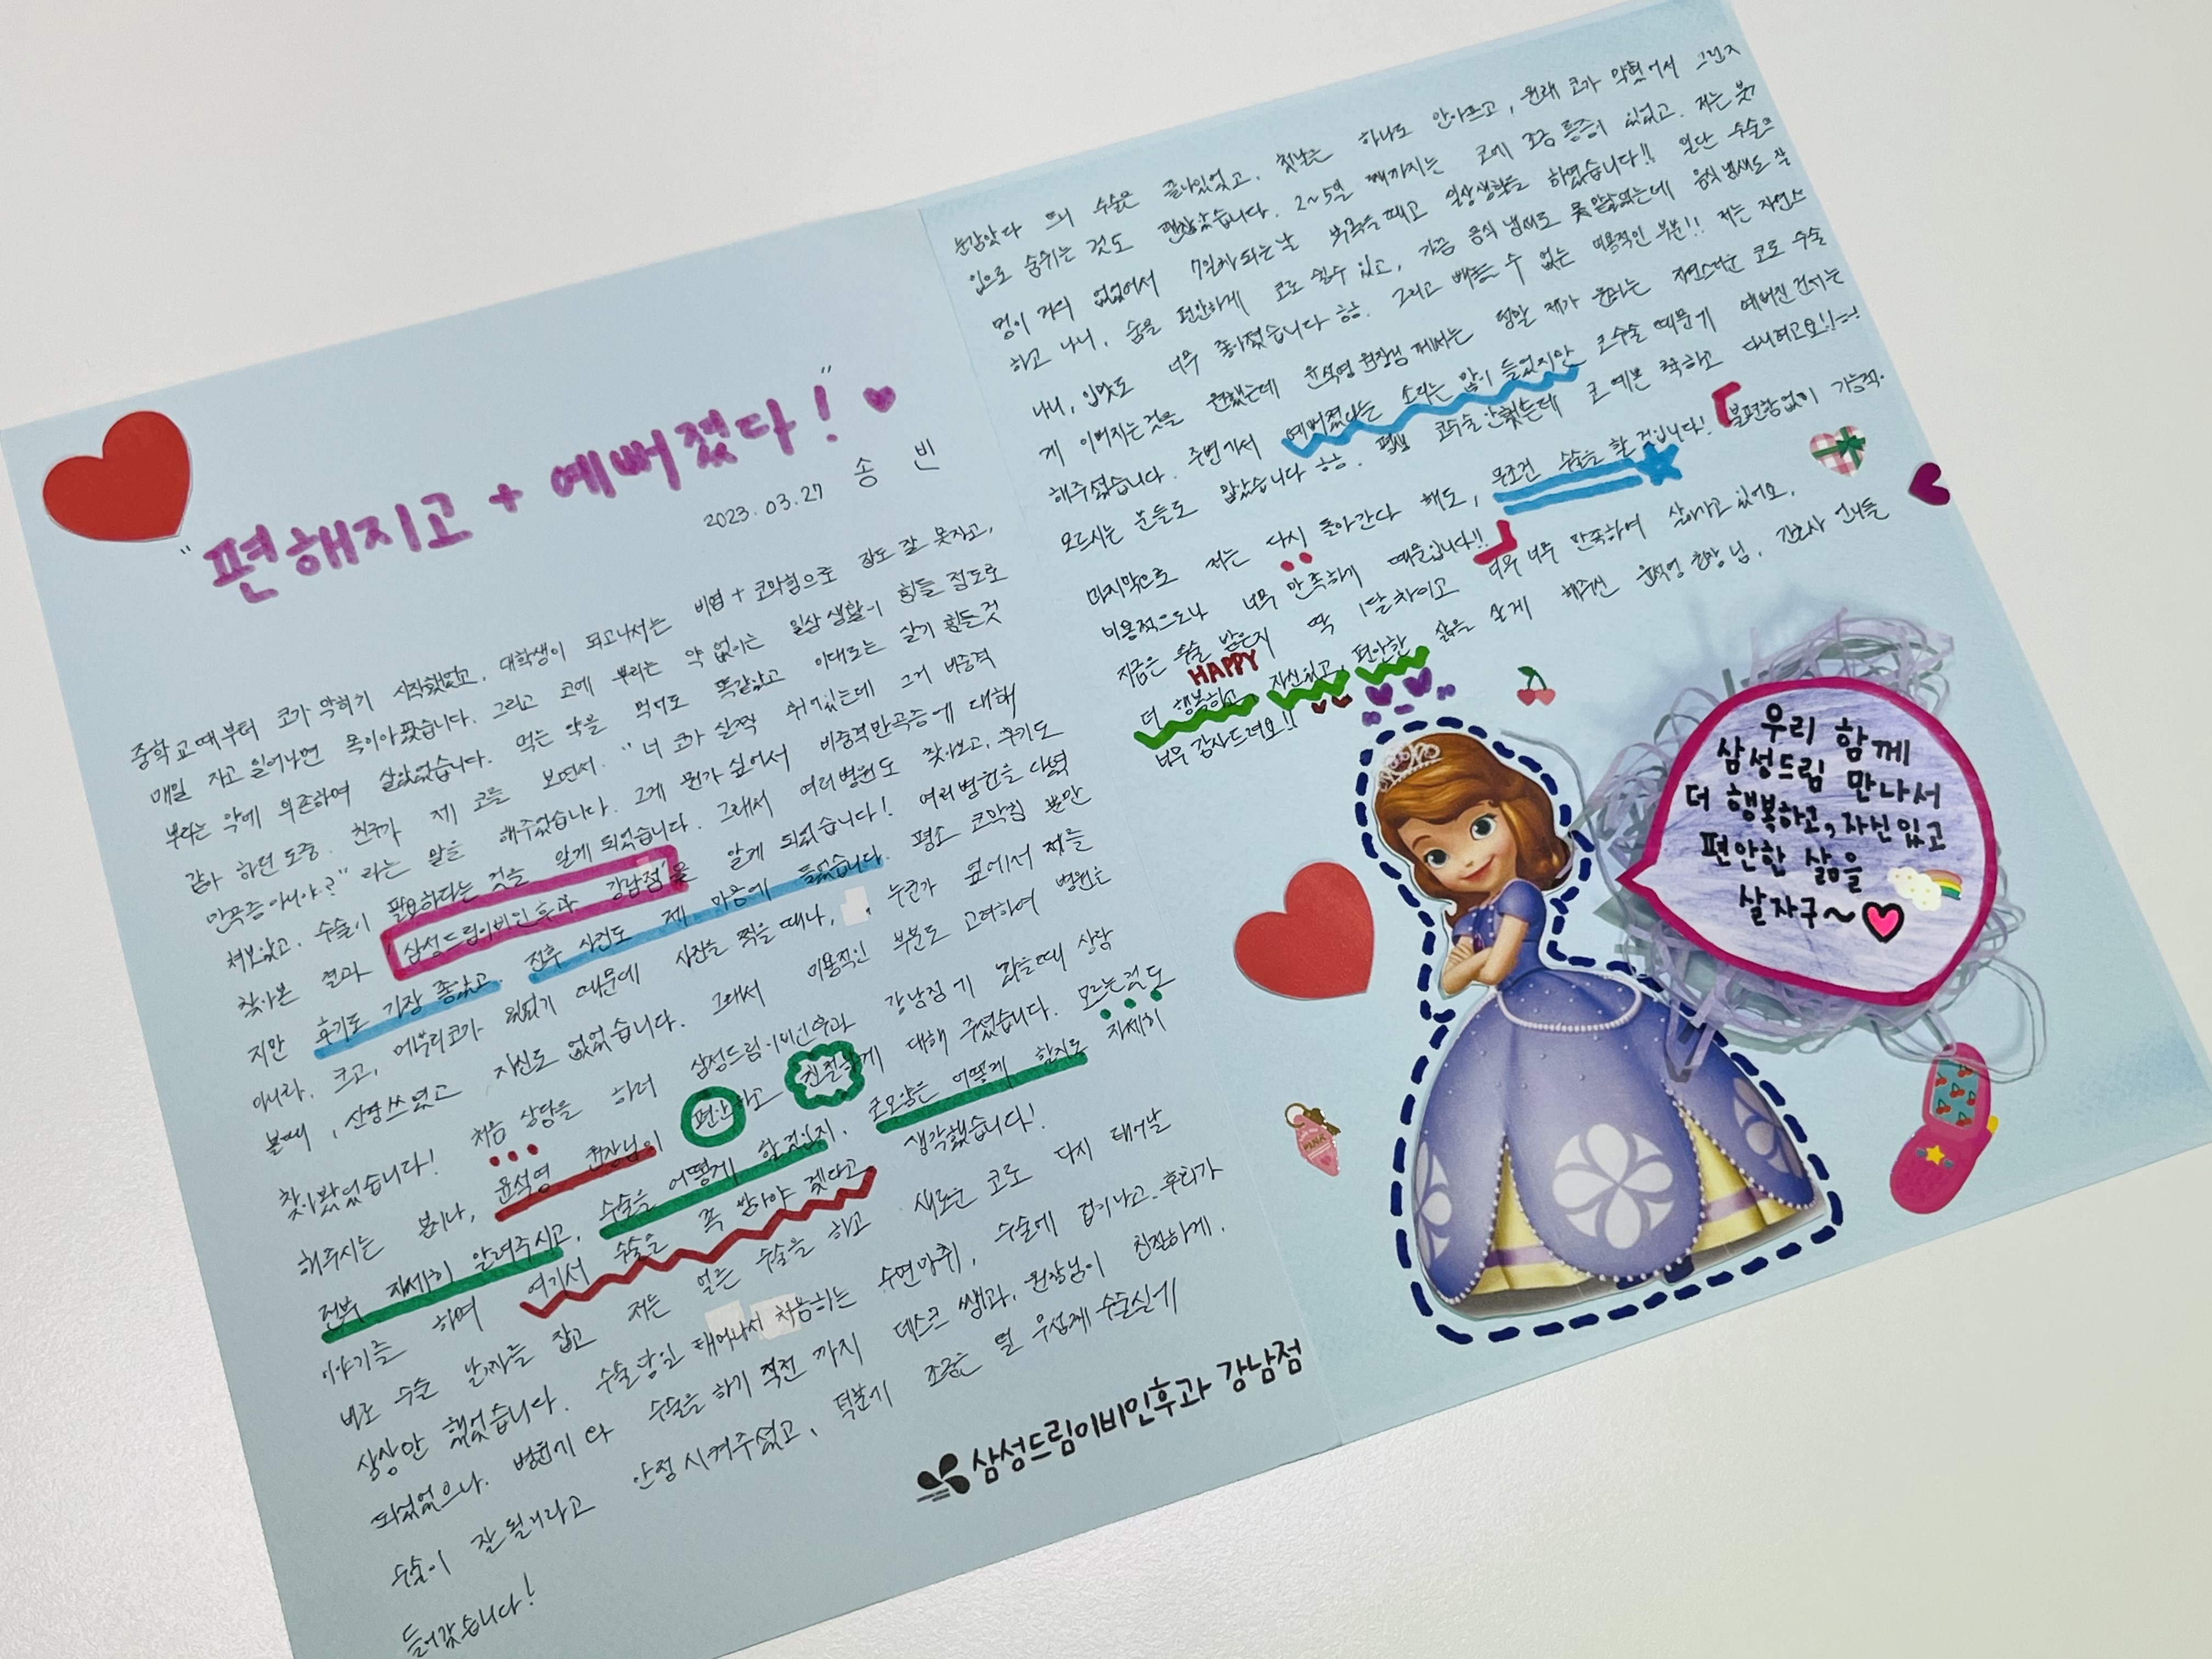 "편해지고 + 예뻐졌다!"
2023.03.27 송 빈
중학교때부터 코가 막히기 시작했었고, 대학생이 되고나서는 비염 + 코막힘으로 잠도 잘 못자고,
매일 자고 일어나면 목이 아팠습니다. 그리고 코에 뿌리는 약 없이는 일상생활이 힘들 정도로
뿌리는 약에 의존하여 살았었습니다. 먹는 약을 먹어도 똑같았고 이대로는 살기 힘든것
같아 하던 도중, 친구가 제 코를 보면서. "너 코가 살짝 휘어있는데 그거 비중격
만곡증아니야?" 라는 말을 해주었습니다. 그게 뭔가 싶어서 비중격만곡증에 대해
쳐보았고, 수술이 필요하다는 것을 알게 되었습니다. 그래서 여러병원도 찾아보고, 후기도
찾아본 결과 "삼성드림이비인후과 강남점"을 알게 되었습니다! 여러병원을 다녔
지만 후기도 가장 좋았고, 전후 사진도 제 마음에 들었습니다. 평소 코막힘 뿐만
아니라, 크고, 메부리코가 있었기 때문에 사진을 찍을 때나, 누군가 옆에서 저를
볼때, 신경쓰였고 자신도 없었습니다. 그래서 미용적인 부분도 고려하여 병원을
찾아봤었습니다! 처음 상담을 하러 삼성드림이비인후과 강남점에 갔을때 상담
해주시는 분이나, 윤석영 원장님이 편안하고 친절하게 대해 주셨습니다. 모르는것도
전부 자세히 알려주시고, 수술을 어떻게 할것인지, 코모양은 어떻게 할지도 자세히
이야기를 하며 여기서 수술을 꼭 받아야 겠다고 생각했습니다!
바로 수술 날짜를 잡고 저는 얼른 수술을 하고 새로운 코로 다시 태어날
상상만 했었습니다. 수술당일 태어나서 처음하는 수면마취, 수술에 겁이나고, 후회가
되었었으나, 병원에 와 수술을 하기 직전 까지 데스크 쌤과, 원장님이 친절하게,
수술이 잘 될거라고 안정시켜주셨고, 덕분에 조금은 덜 무섭게 수술실에
들어갔습니다!
삼성드림이비인후과 강남점
눈감았다 뜨니 수술은 끝나있었고, 첫날은 하나도 안아프고, 원래 코가 막혔어서 그런지
입으로 숨쉬는 것도 괜찮았습니다. 2~5일 째까지는 코에 조금 통증이 있었고, 저는 붓기
멍이 거의 없었어서 7일차 되는날 부목을 떼고 일상생활을 하였습니다!! 일단 수술을
하고 나니, 숨을 편안하게 코로 쉴수 있고, 가끔 음식 냄새도 못맡았는데 음식 냄새도 잘
나니, 입맛도 너무 좋아졌습니다 ㅎㅎ. 그리고 빼놓을 수 없는 미용적인 부분!! 저는 자연스럽
게 이뻐지는것을 원했는데 윤석영 원장님께서는 정말 제가 원하는 자연스러운 코로 수술
해주셨습니다. 주변에서 예뻐졌다는 소리는 많이 들었지만 코수술 때문에 예뻐진건지는
모르시는 분들도 많았습니다 ㅎㅎ. 평생 코수술 안했는데 코 예쁜 척하고 다니려고요!!
마지막으로 저는 다시 돌아간다 해도, 무조건 수술을 할 것입니다! 「불편함없이 기능적.
미용적으로나 너무 만족하기 때문입니다!!」
지금은 수술 받은지 딱 1달차이고 너무 너무 만족하며 살아가고 있어요.
HAPPY
더 행복하고, 자신있고, 편안한 삶을 살게 해주신 윤석영 원장님, 간호사 언니들
너무 감사드려요!!
우리 함께
삼성드림 만나서
더 행복하고, 자신있고
편안한 삶을
살자구~